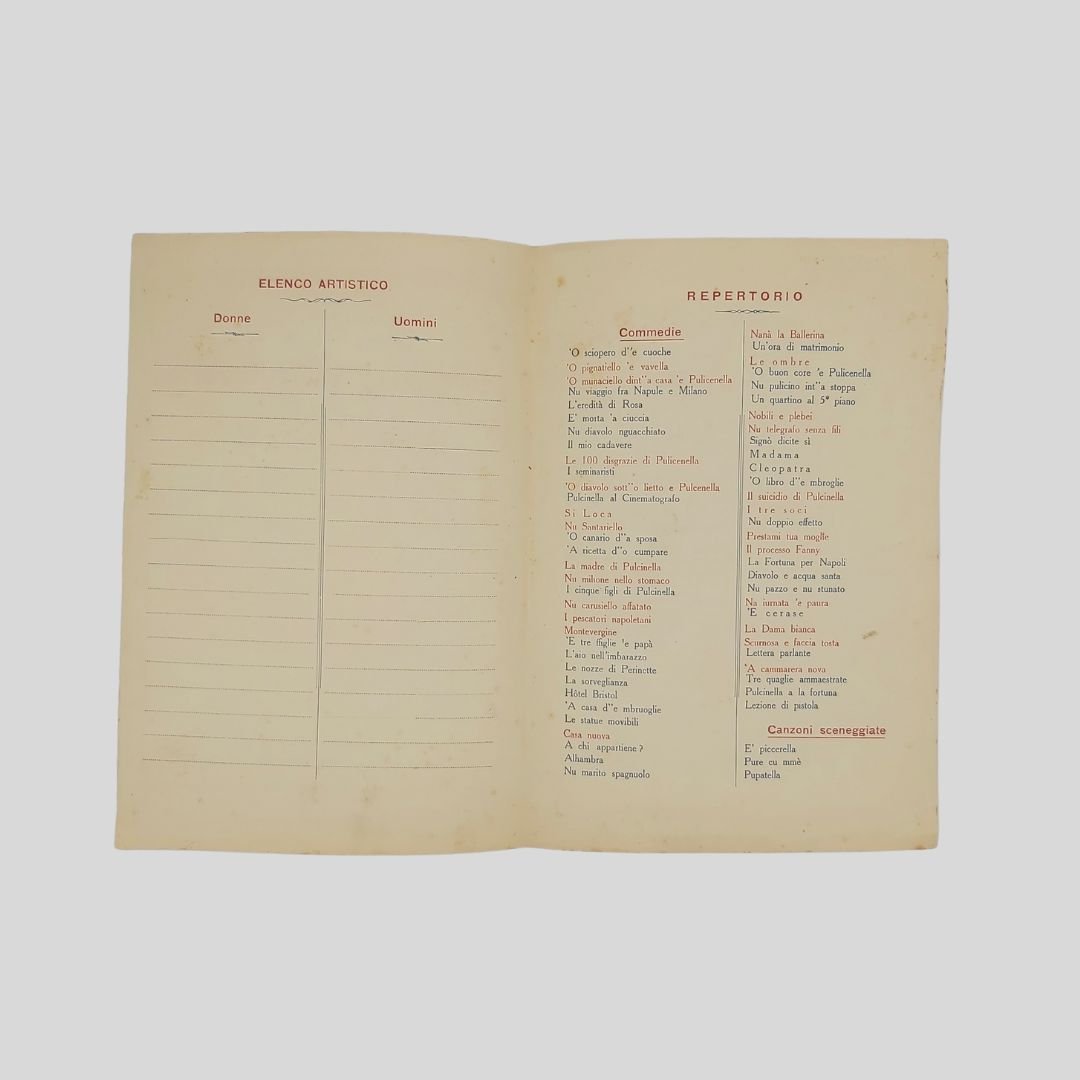 ELENCO ARTISTICO
Donne
Uomini
REPERTORIO
Commedie
'O sciopero d''e cuoche
'O pignatiello 'e vavella
'O munaciello dint''a casa 'e Pulicenella
Nu viaggio fra Napule e Milano
L'eredità di Rosa
E' morta 'a ciuccia
Nu diavolo nguacchiato
Il mio cadavere
Le 100 disgrazie di Pulicenella
I seminaristi
'O diavolo sott''o lietto e Pulcenella
Pulcinella al Cinematografo
Si Loca
Nu Santariello
'O canario d''a sposa
'A ricetta d''o cumpare
La madre di Pulcinella
Nu milione nello stomaco
I cinque figli di Pulcinella
Nu carusiello affatato
I pescatori napoletani
Montevergine
'E tre ffiglie 'e papà
L'aio nell'imbarazzo
Le nozze di Perinette
La sorveglianza
Hôtel Bristol
'A casa d''e mbruoglie
Le statue movibili
Casa nuova
A chi appartiene?
Alhambra
Nu marito spagnuolo
Nanà la Ballerina
Un'ora di matrimonio
Le ombre
'O buon core 'e Pulicenella
Nu pulicino int''a stoppa
Un quartino al 5º piano
Nobili e plebei
Nu telegrafo senza fili
Signò dicite sì
Madama
Cleopatra
'O libro d''e mbroglie
Il suicidio di Pulcinella
I tre soci
Nu doppio effetto
Prestami tua moglie
Il processo Fanny
La Fortuna per Napoli
Diavolo e acqua santa
Nu pazzo e nu stunato
Na iurnata 'e paura
'E cerase
La Dama bianca
Scurnosa e faccia tosta
Lettera parlante
'A cammarera nova
Tre quaglie ammaestrate
Pulcinella a la fortuna
Lezione di pistola
Canzoni sceneggiate
E' piccerella
Pure cu mmè
Pupatella